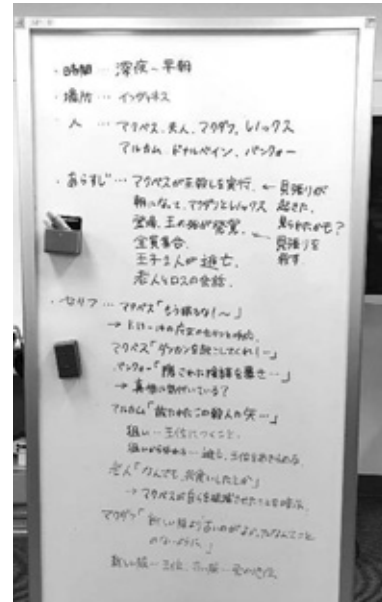 ・時間…深夜~早朝
・場所…インヴァネス
・人…マクベス、夫人、マクダフ、レノックス
マルカム、ドナルベイン、バンクォー
・あらすじ…マクベスが王殺しを実行。←見張りが
起きた。
見られたかも?
朝になって、マクダフとレノックス
登場、王の死が発覚。←見張りを
殺す
全員集合。
王子2人が逃亡。
老人とロスの会話。
・セリフ…マクベス「もう眠るな!~」
マクベス「ダンカンを起こしてくれ!~」
バンクォー「隠された陰謀を暴き…」
→真相に気付いている?
マルカム「放たれたこの殺人の矢…」
狙い…王位につくこと。
老人「なんでも、共食いしたとか」
→マクベスが
マクダフ「新しい服より古いのがよかったなんてこと
のないように。」
新しい服…王位、古い服…